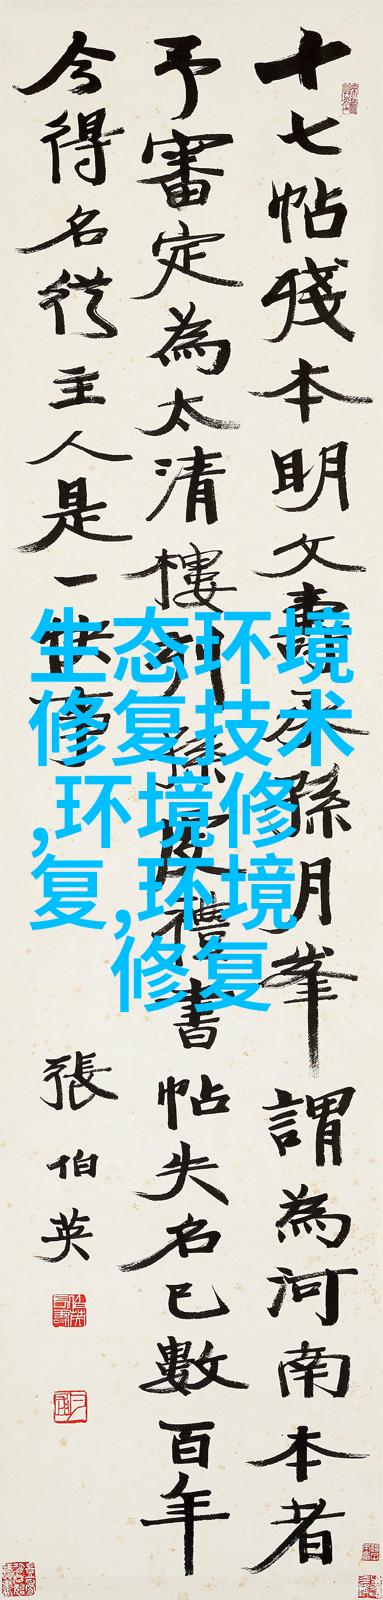 十七帖殘本明文壽承孫月峯謂為河南本者
予審定為太清樓刻孫虔禮書帖失名已數百年
今得名從主人是一快事
張伯英
生态环境
修复技术
,环境修
复,环境
修复